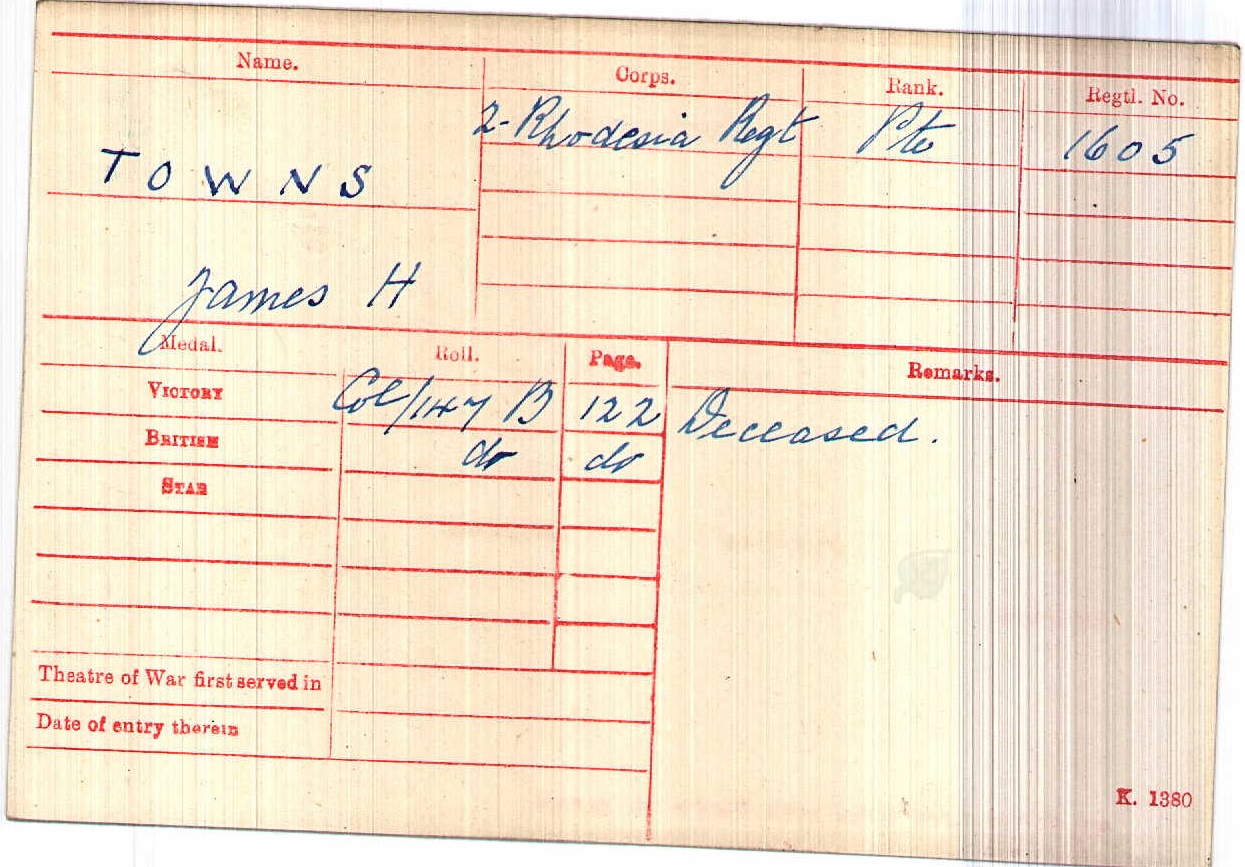 Name. Corps. Rank. Regtl. No.
2-Rhodesia Regt Pte 1605
TOWNS
James H
Medal. Roll. Page. Remarks.
VICTORY Col/147 B 122 Deceased.
BRITISH do do
STAR
Theatre of War first served in
Date of entry therein
K. 1380